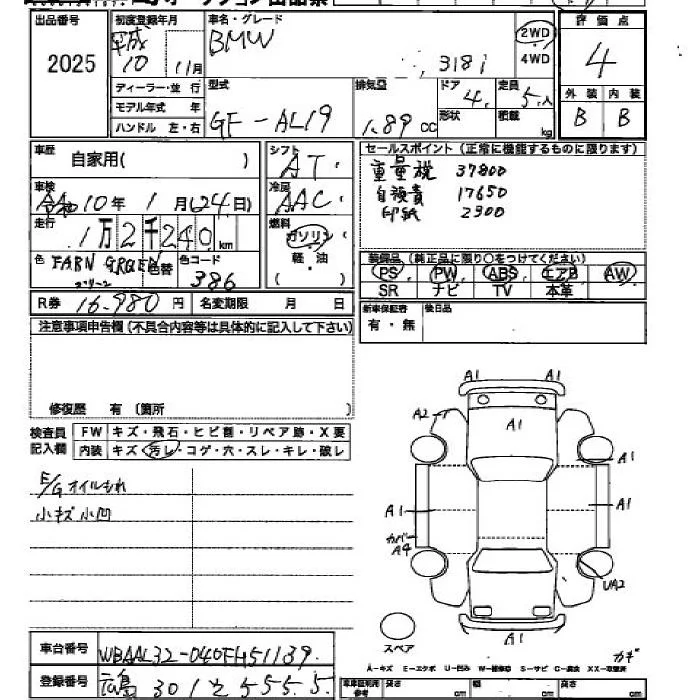 出品番号 初度登録年月 車名・グレード 評価点
2025 平成 10 11月 BMW 318i 2WD 4WD 4
ディーラー・並 行 型式 排気量 ドア 定員 外装 内装
モデル年式 年 GF-AL19 1.89 cc 4. 5人 B B
ハンドル 左・右 形状 積載 kg
車歴 自家用( ) シフト AT. セールスポイント (正常に機能するものに限ります)
車検 令和10年 1月(24日) 冷房 AAC. 重量税 37800
自賠責 17650
印紙 2300
走行 1万2千240km 燃料 ガソリン
軽・油
( )
色 FARN GREEN 色替 色コード 386
グリーン
装備品 (純正品に限り○をつけてください)
PS PW ABS エアB AW
SR ナビ TV 本革
R券 16.980 円 名変期限 月 日
新車保証書 有・無 後日品
注意事項申告欄 (不具合内容等は具体的に記入して下さい)
修復歴 有 (箇所 )
検査員 FW キズ・飛石・ヒビ割・リペア跡・X要
記入欄 内装 キズ・汚レ・コゲ・穴・スレ・キレ・破レ
E/Gオイルもれ
小キズ小凹
A1 A1
A2 A1
A1
A1 A1
カバー A4
UA2
A1
スペア
カギ
A-キズ E-エクボ U-凹み W-補修跡 S-サビ C-腐食 XX-交換済
車台番号 WBAAL32-040FH51139.
登録番号 広島 301 と 5555.
車庫証明用参考 長さ cm 幅 cm 高さ cm